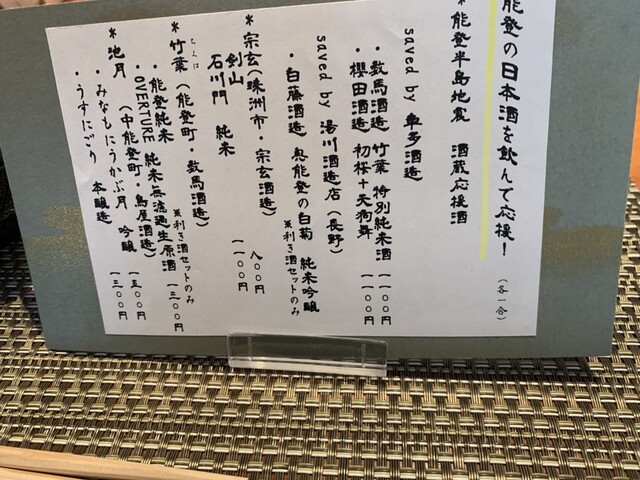 能登の日本酒を飲んで応援!
(各一合)
*能登半島地震 酒蔵応援酒
saved by 車多酒造
・数馬酒造 竹葉 特別純米酒 一一〇〇円
・櫻田酒造 初桜+天狗舞 一一〇〇円
saved by 湯川酒造店(長野)
・白藤酒造 奥能登の白菊 純米吟醸
※利き酒セットのみ
*宗玄(珠洲市・宗玄酒造)
剣山 八〇〇円
石川門 純米 一一〇〇円
*竹葉(能登町・数馬酒造)
ちくは
・能登純米 ※利き酒セットのみ
・OVERTURE 純米無濾過生原酒 一三〇〇円
*池月 (中能登町・鳥屋酒造)
・みなもにうかぶ月 吟醸 一五〇〇円
・うすにごり 本醸造 一三〇〇円